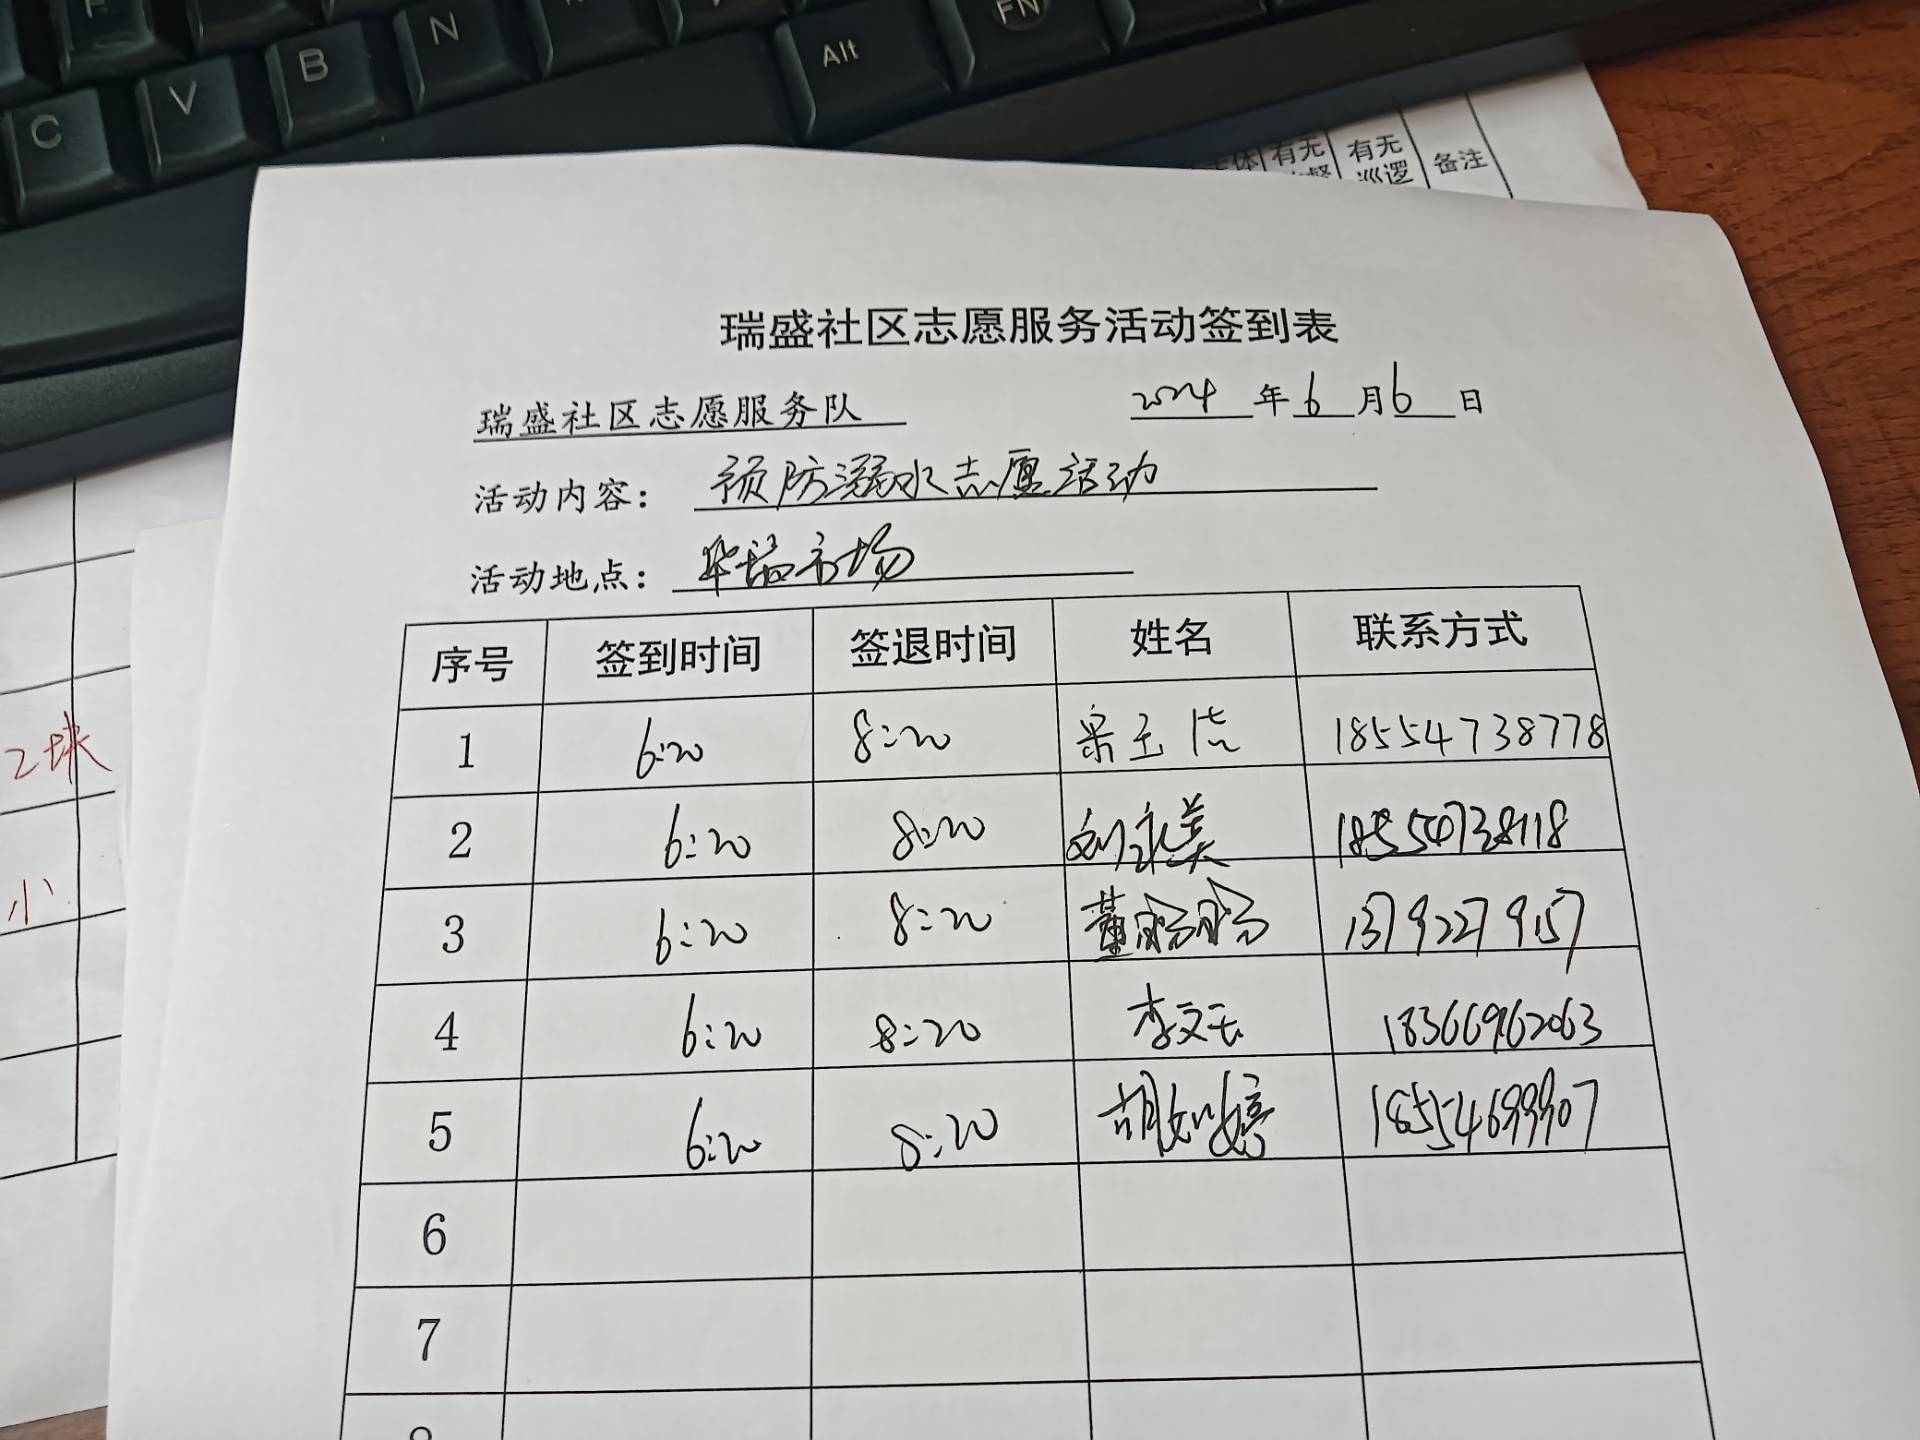 C V B N Alt FN
有无 有无 备注
巡逻
瑞盛社区志愿服务活动签到表
瑞盛社区志愿服务队 2024 年 6 月 6 日
活动内容： 预防溺水志愿活动
活动地点： 华瑞市场
序号 签到时间 签退时间 姓名 联系方式
1 6:20 8:20 宋玉洁 18554738778
2 6:20 8:20 刘永美 18554738118
3 6:20 8:20 董 13792279157
4 6:20 8:20 李文 18366962063
5 6:20 8:20 胡如婷 18554699907
6
7
2块
小